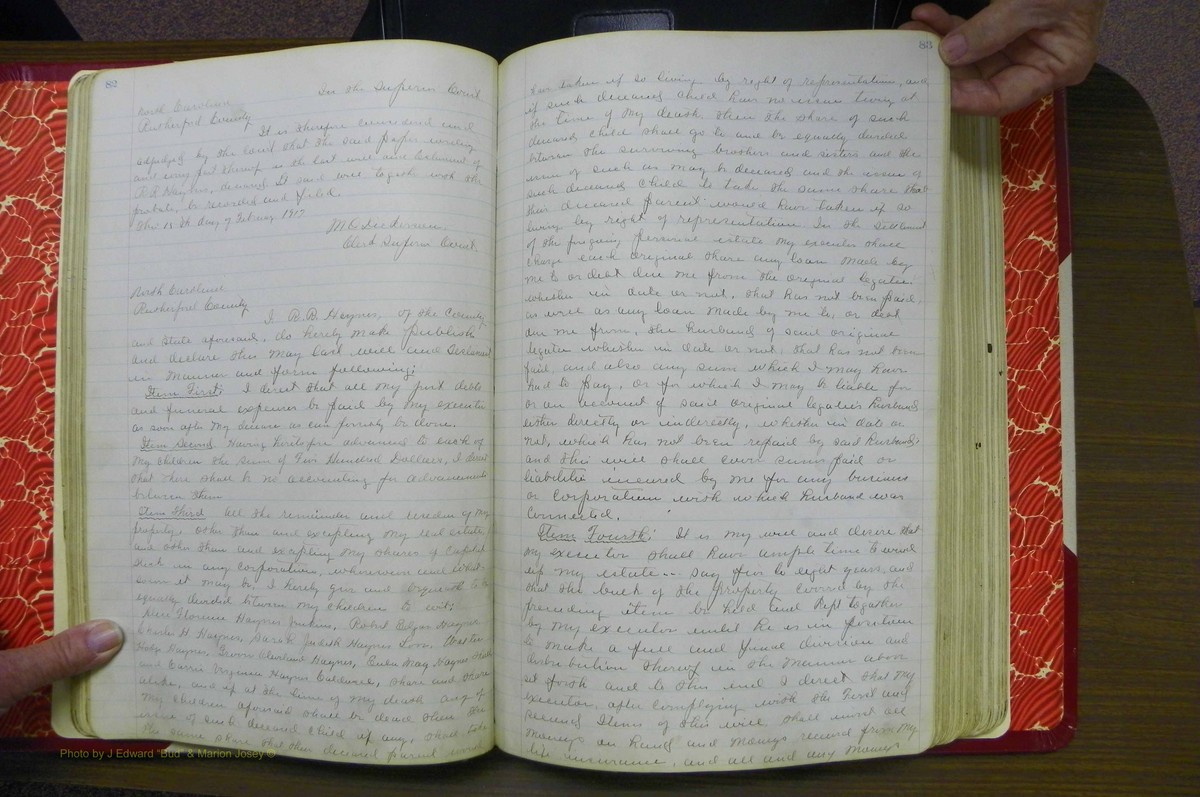 82
North Carolina
Rutherford County
In the Superior Court
It is therefore considered and
adjudged by the Court that the said paper writing
and every part thereof is the last will and testament of
B. B. Haynes, deceased. It said will together with the
probate, be recorded and filed.
This 15th day of February 1917
Clerk Superior Court.
North Carolina
Rutherford County
I B.B. Haynes, of the County
and State aforesaid, do hereby make publish
and declare this my last will and testament
in manner and form following:
Item First: I direct that all my just debts
and funeral expenses be paid by my executor
as soon after my decease as can possibly be done.
Item Second. Having heretofore advanced to each of
my children the sum of Five Hundred Dollars, I direct
that there shall be no accounting for advancements
between them
Item Third. All the remainder and residue of my
property, other than and excepting my real estate
and other than and excepting my shares of Capital
Stock in any corporation, wheresoever and what-
soever it may be, I hereby give and bequeath to be
equally divided between my children to wit:
Florence Haynes Jenkins, Robert Edgar Haynes
Charles H Haynes, Sarah Judith Haynes Love, Walter
Hodge Haynes, Grover Cleveland Haynes, Eula May Haynes
and Carrie Virginia Haynes Caldwell, share and share
alike, and if at the time of my death any of
my children aforesaid shall be dead then the
issue of such deceased child if any, shall take
the same share that their deceased parent would
83
have taken if so living by right of representation, and
if such deceased child have no issue living at
the time of my death, then the share of such
deceased child shall go to and be equally divided
between the surviving brothers and sisters and the
issue of such as may be deceased and the issue of
such deceased child to take the same share that
their deceased parent would have taken if so
living by right of representation. In the settlement
of the foregoing personal estate my executor shall
charge each original share any loan made by
me to or debt due me from the original legatee
whether in date or not, that has not been paid,
as well as any loan made by me to, or debt
due me from, the husband of said original
legatee whether in date or not that has not been
paid, and also any sum which I may have
had to pay, or for which I may be liable for
or on account of said original legatee's husband
either directly or indirectly, whether in date or
not, which has not been repaid by said husband;
and this will shall cover sums paid or
liabilities incurred by me for any business
or corporation with which husband was
connected.
Item Fourth: It is my will and desire that
my executor shall have ample time to wind
up my estate -- say five to eight years, and
that the bulk of the property covered by the
preceding item be held and kept together
by my executor until he is in position
to make a full and final division and
distribution thereof in the manner above
set forth and to this end I direct that my
executor, after complying with the First and
Second Items of this will, shall invest all
moneys on hand and moneys received from my
life insurance, and all and any moneys
Photo by J Edward "Bud" & Marion Josey ©